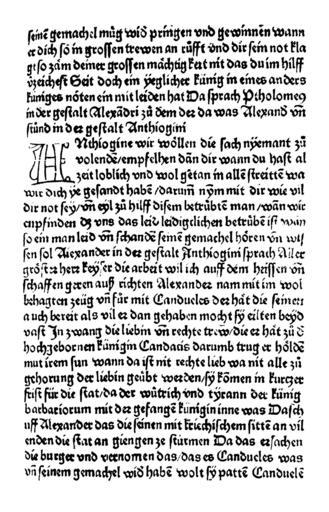 seinē gemachel mŭg wid pringen vnd gewinnen wann
er dich so in grossen trewen an rŭfft vnd dir sein not kla
gt so zam deiner grossen mächtig kait nit das du im hilff
vzeichest Seit doch ein yeglicher kŭnig in eines anders
kŭniges nöten ein mit leiden hat Da sprach Ptholomeus
in der gestalt Alexādri zŭ dem der da was Alexand vn̄
stŭnd in der gestalt Anthiogini
ANthiogine wir wöllen die sach nyemant zŭ
volende/empfelhen dān dir wann du hast al
zeit loblich und wol getan in alle streitte wa
wir dich ye gesandt habē/darum̄ nym̄ mit dir wie vil
dir not sey/vn̄ eyl zŭ hilff disem betrŭbtē man/wān wir
enpfinden dz vns das leid leidigklichen betrŭbet ist wān
so ein man leid vn̄ schande seinē gemachel hören vn̄ wis
sen sol Alexander in der gestalt Anthiogini sprach Aller
gröster herr keyser die arbeit wil ich auff dem heissen vn̄
schaffen geren auß richten Alexander nam mit im wol
behagten zeŭg vn̄ fŭr mit Candueles der hat die seinen
auch bereit als vil er dan gehaben mocht sy eilten beyd
vast In zwang die liebin vn̄ rechte trew/die er hat zŭ d
hochgebornen kŭnigin Candacis darumb trug er höldē
mut irem sun wann da ist nit rechte lieb wa nit alle zŭ
gehorung der liebin geŭbt werden/sy kōmen in kurtzer
frist fŭr die stat/da der wŭtrich und tÿrann der kŭnig
barbariorum mit der gefangē kŭnigin inne was Dasch
uff Alexander das die seinen mit kriechischem sittē an vil
enden die stat an giengen ze stŭrmen Da das ersachen
die burger und vernomen das/das es Candueles was
vn̄ seinem gemachel wid habē wolt sy pattē Canduelē